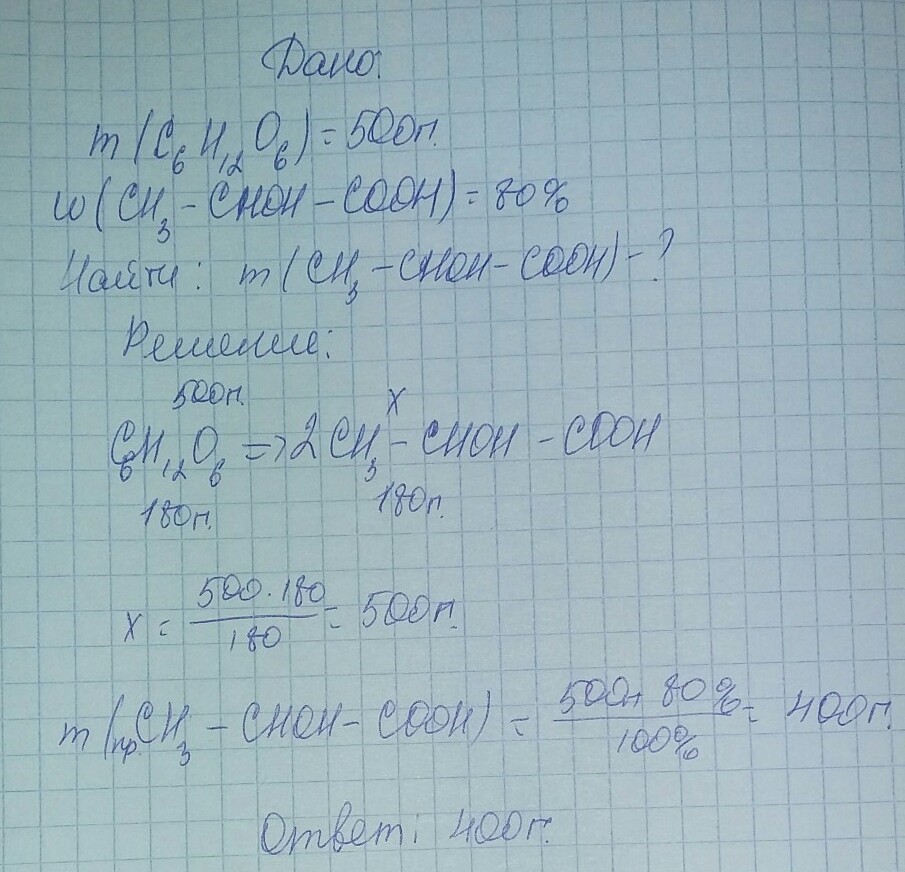 Дано:
m(C₆H₁₂O₆) = 500г.
w(CH₃ – CHOH – COOH) = 80%
Найти: m(CH₃ – CHOH – COOH) – ?
Решение:
500г. x
C₆H₁₂O₆ => 2CH₃ – CHOH – COOH
180г. 180г.
x = 500 · 180 / 180 = 500г.
m(пр. CH₃ – CHOH – COOH) = 500г · 80% / 100% = 400г.
Ответ: 400г.